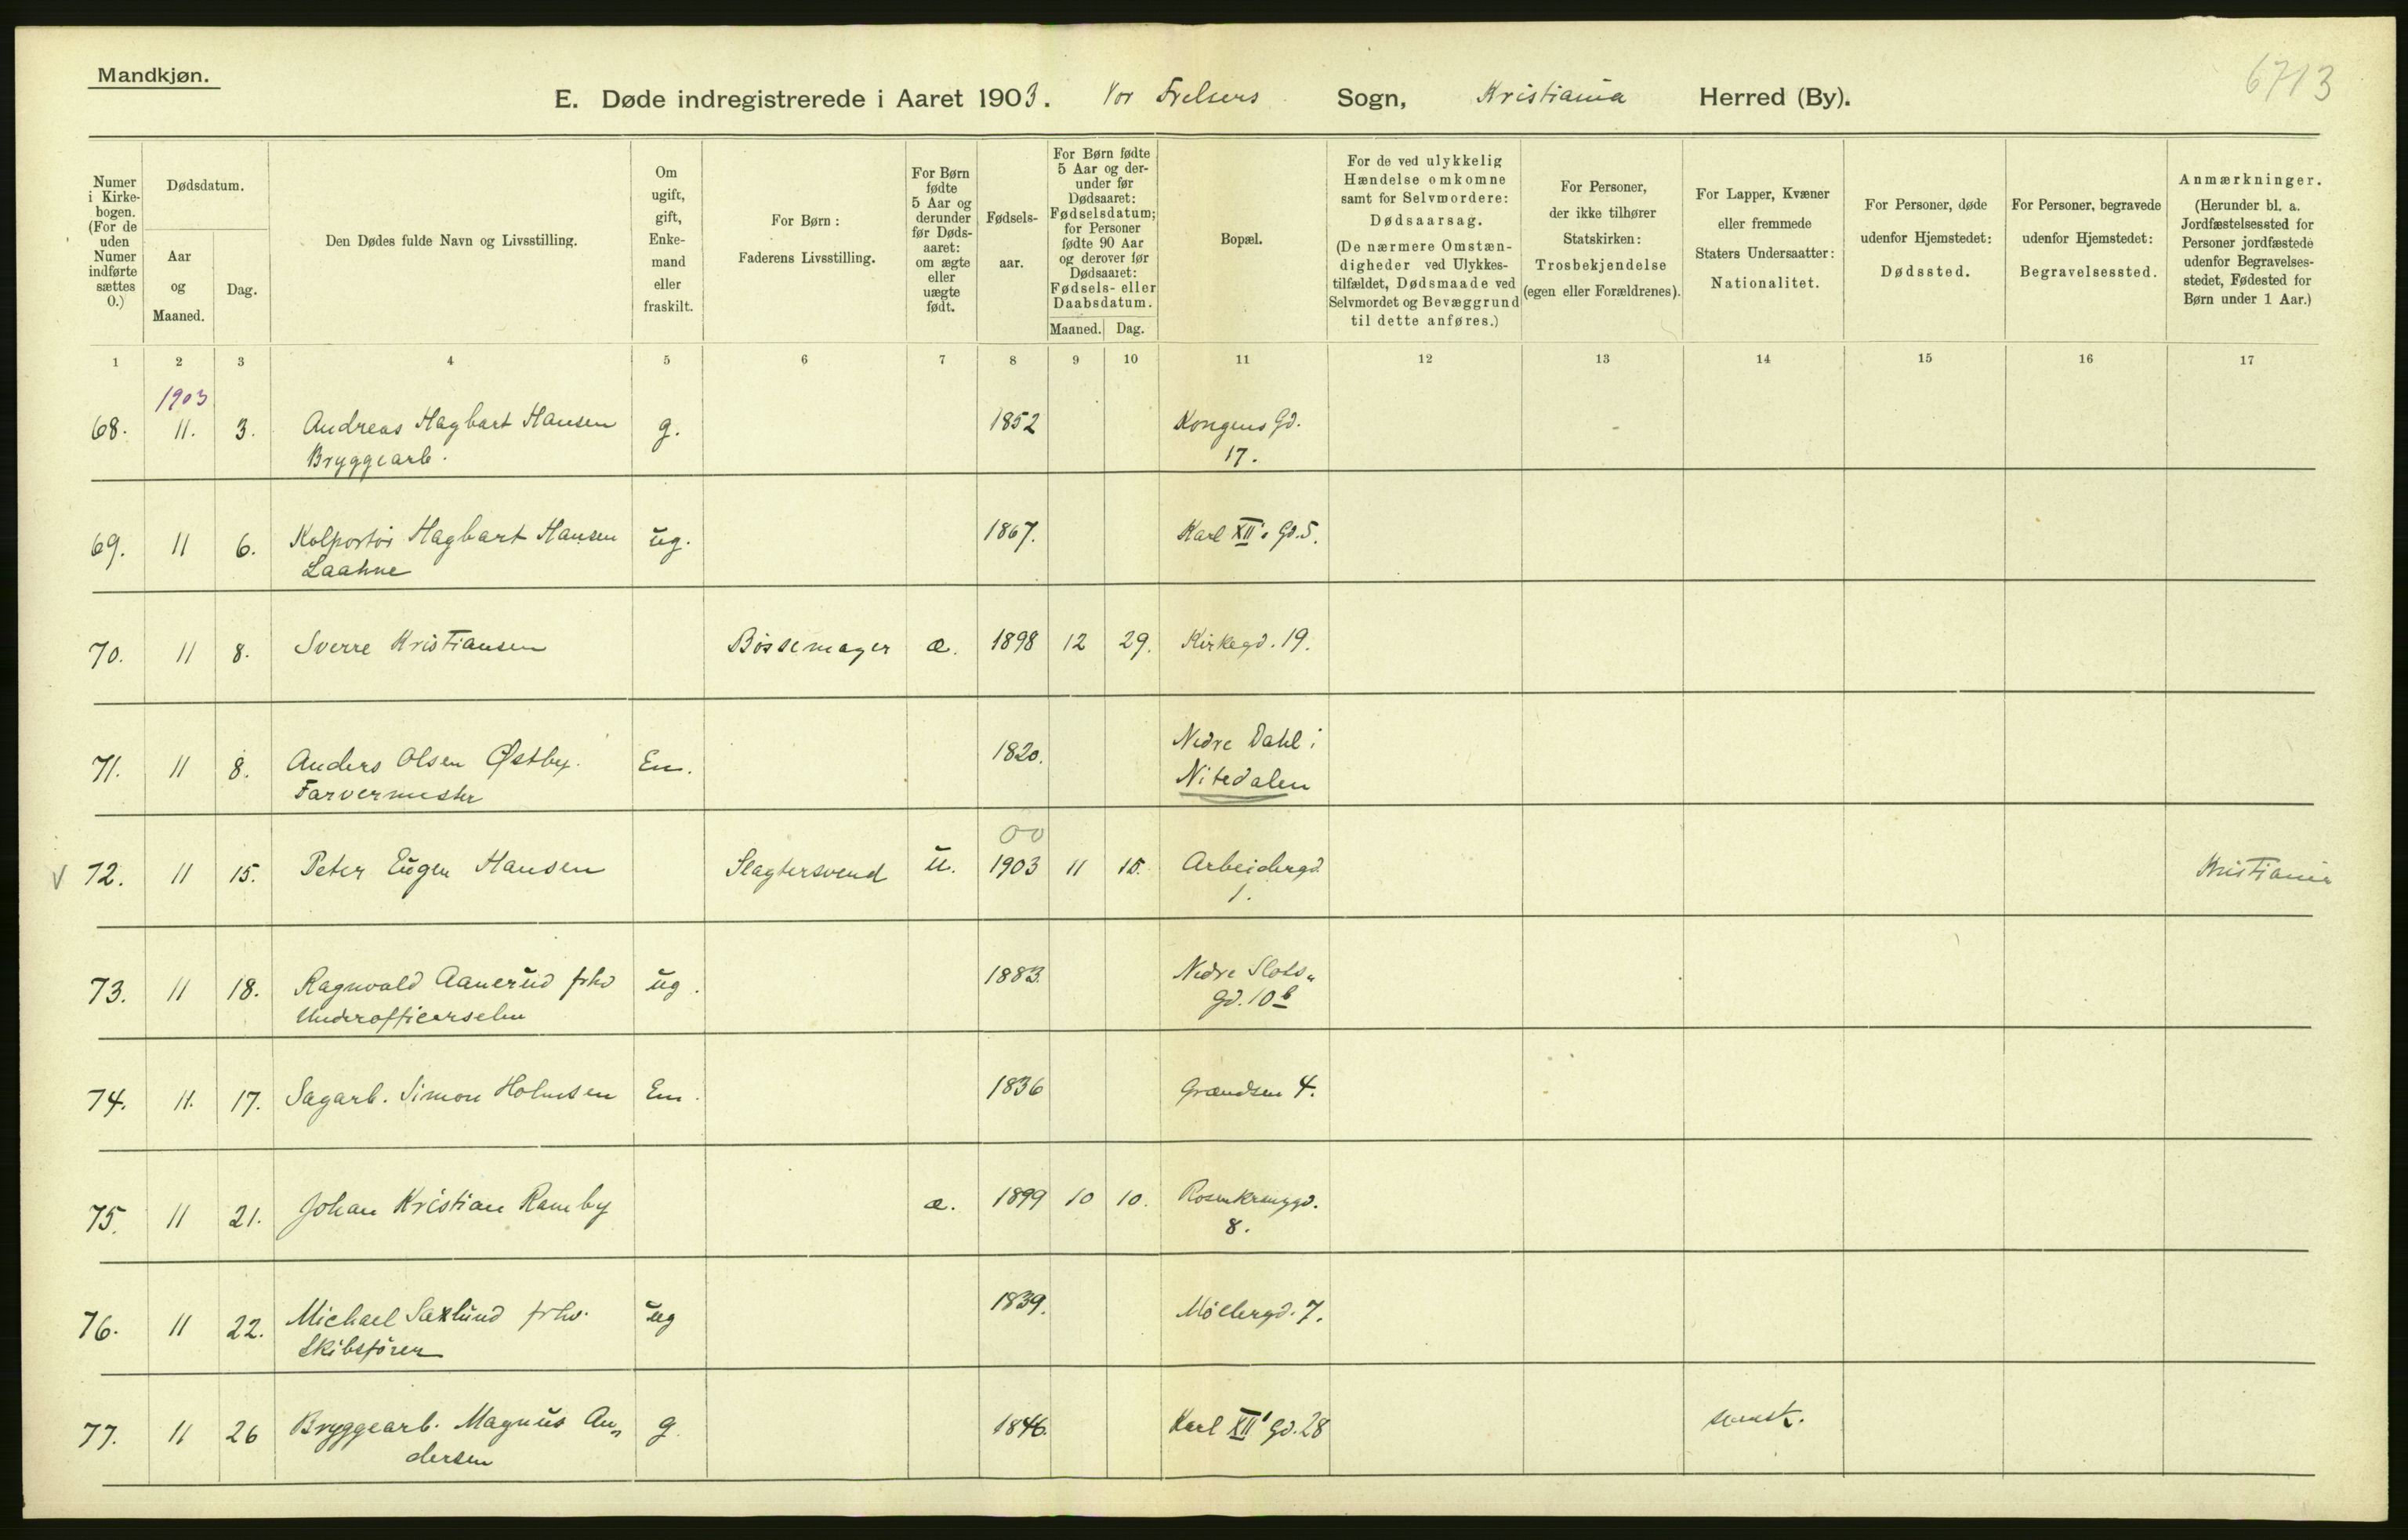 Mandkjøn.
6713
E. Døde indregistrerede i Aaret 1903. Vor Frelsers Sogn, Kristiania Herred (By).
Numer i Kirkebogen. (For de uden Numer indførte sættes 0.)
Dødsdatum.
Aar og Maaned.
Dag.
Den Dødes fulde Navn og Livsstilling.
Om ugift, gift, Enkemand eller fraskilt.
For Børn: Faderens Livsstilling.
For Børn fødte 5 Aar og derunder før Dødsaaret: om ægte eller uægte født.
Fødselsaar.
For Børn fødte 5 Aar og derunder før Dødsaaret: Fødselsdatum; for Personer fødte 90 Aar og derover før Dødsaaret: Fødsels- eller Daabsdatum.
Maaned. Dag.
Bopæl.
For de ved ulykkelig Hændelse omkomne samt for Selvmordere: Dødsaarsag. (De nærmere Omstændigheder ved Ulykkestilfældet, Dødsmaade ved Selvmordet og Bevæggrund til dette anføres.)
For Personer, der ikke tilhører Statskirken: Trosbekjendelse (egen eller Forældrenes).
For Lapper, Kvæner eller fremmede Staters Undersaatter: Nationalitet.
For Personer, døde udenfor Hjemstedet: Dødssted.
For Personer, begravede udenfor Hjemstedet: Begravelsessted.
Anmærkninger. (Herunder bl. a. Jordfæstelsessted for Personer jordfæstede udenfor Begravelsesstedet, Fødested for Børn under 1 Aar.)
1 2 3 4 5 6 7 8 9 10 11 12 13 14 15 16 17
1903
68. 11. 3. Andreas Hagbart Hansen g. 1852 Kongens Gd.
Bryggearb. 17.
69. 11 6. Kolportør Hagbart Hansen ug. 1867. Karl XII's Gd. 5.
Laahne
70. 11 8. Sverre Kristiansen Bøssemager æ. 1898 12 29. Kirkegd. 19.
71. 11 8. Anders Olsen Østby. Em. 1820. Nedre Dahl i
Farvermester Nitedalen
00
V 72. 11 15. Peter Eugen Hansen Slagtersvend u. 1903 11 15. Arbeidergd. Kristiania
1.
73. 11 18. Ragnvald Aanerud fhv ug. 1883. Nedre Slots„
Underofficerselev Gd. 10 b
74. 11. 17. Sagarb. Simon Holmsen Em. 1836 Grændsen 4.
75. 11 21. Johan Kristian Ramby æ. 1899 10 10. Rosenkranzgd.
8.
76. 11 22. Michael Saxlund fhv. ug 1839. Møllergd. 7.
Skibsfører
77. 11 26 Bryggearb. Magnus An„ g. 1846. Karl XII' Gd. 28 svensk.
dersen